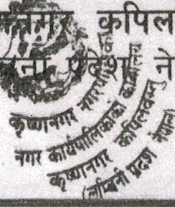 नगर कपिल
प्रदेश ने
कृष्णनगर नगरपालिका
नगर कार्यपालिकाको कार्यालय
कृष्णनगर कपिलवस्तु
(लुम्बिनी प्रदेश नेपाल)